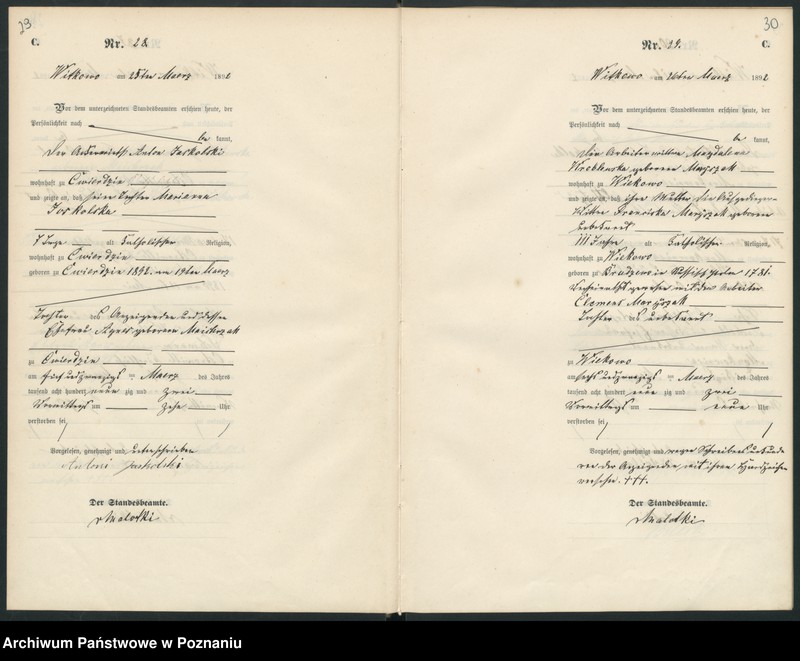 29
C.
Nr. 28.
Witkowo am 25ten Maerz 1892
Vor dem unterzeichneten Standesbeamten erschien heute, der
Persönlichkeit nach
be kannt,
der Anton Jaskolski
wohnhaft zu Cwierdzin
und zeigte an, daß seine Tochter Marianna
Jaskolska
7 Tage alt katholischer Religion,
wohnhaft zu Cwierdzin
geboren zu Cwierdzin 1892. am 19ten Maerz
Tochter des Anzeigenden und dessen
Ehefrau Agnes geborenen
zu Cwierdzin
am fünf und zwanzigs ten Maerz des Jahres
tausend acht hundert neun zig und zwei
Vormittags um zehn Uhr
verstorben sei
Vorgelesen, genehmigt und unterschrieben
Antoni Jaskolski
Der Standesbeamte.
Malotki
30
C.
Nr. 29.
Witkowo am 26ten Maerz 1892
Vor dem unterzeichneten Standesbeamten erschien heute, der
Persönlichkeit nach
be kannt,
die Arbeiterwittwe Magdalena
Wroblewska geborene Maryszak
wohnhaft zu Witkowo
und zeigte an, daß ihre Mutter, die
Wittwe Franciska Maryszak geborene
unbekannt
111 Jahre alt katholischer Religion,
wohnhaft zu Witkowo
geboren zu in Russisch Polen 1781.
Verheirathet gewesen mit dem Arbeiter
Clemens Maryszak
Tochter des unbekannt
zu Witkowo
am sechs und zwanzigs ten Maerz des Jahres
tausend acht hundert neun zig und zwei
Vormittags um neun Uhr
verstorben sei
Vorgelesen, genehmigt und wegen Schreibensunkunde
von der Anzeigenden mit ihren Handzeichen
versehen. +++.
Der Standesbeamte.
Malotki
Archiwum Państwowe w Poznaniu